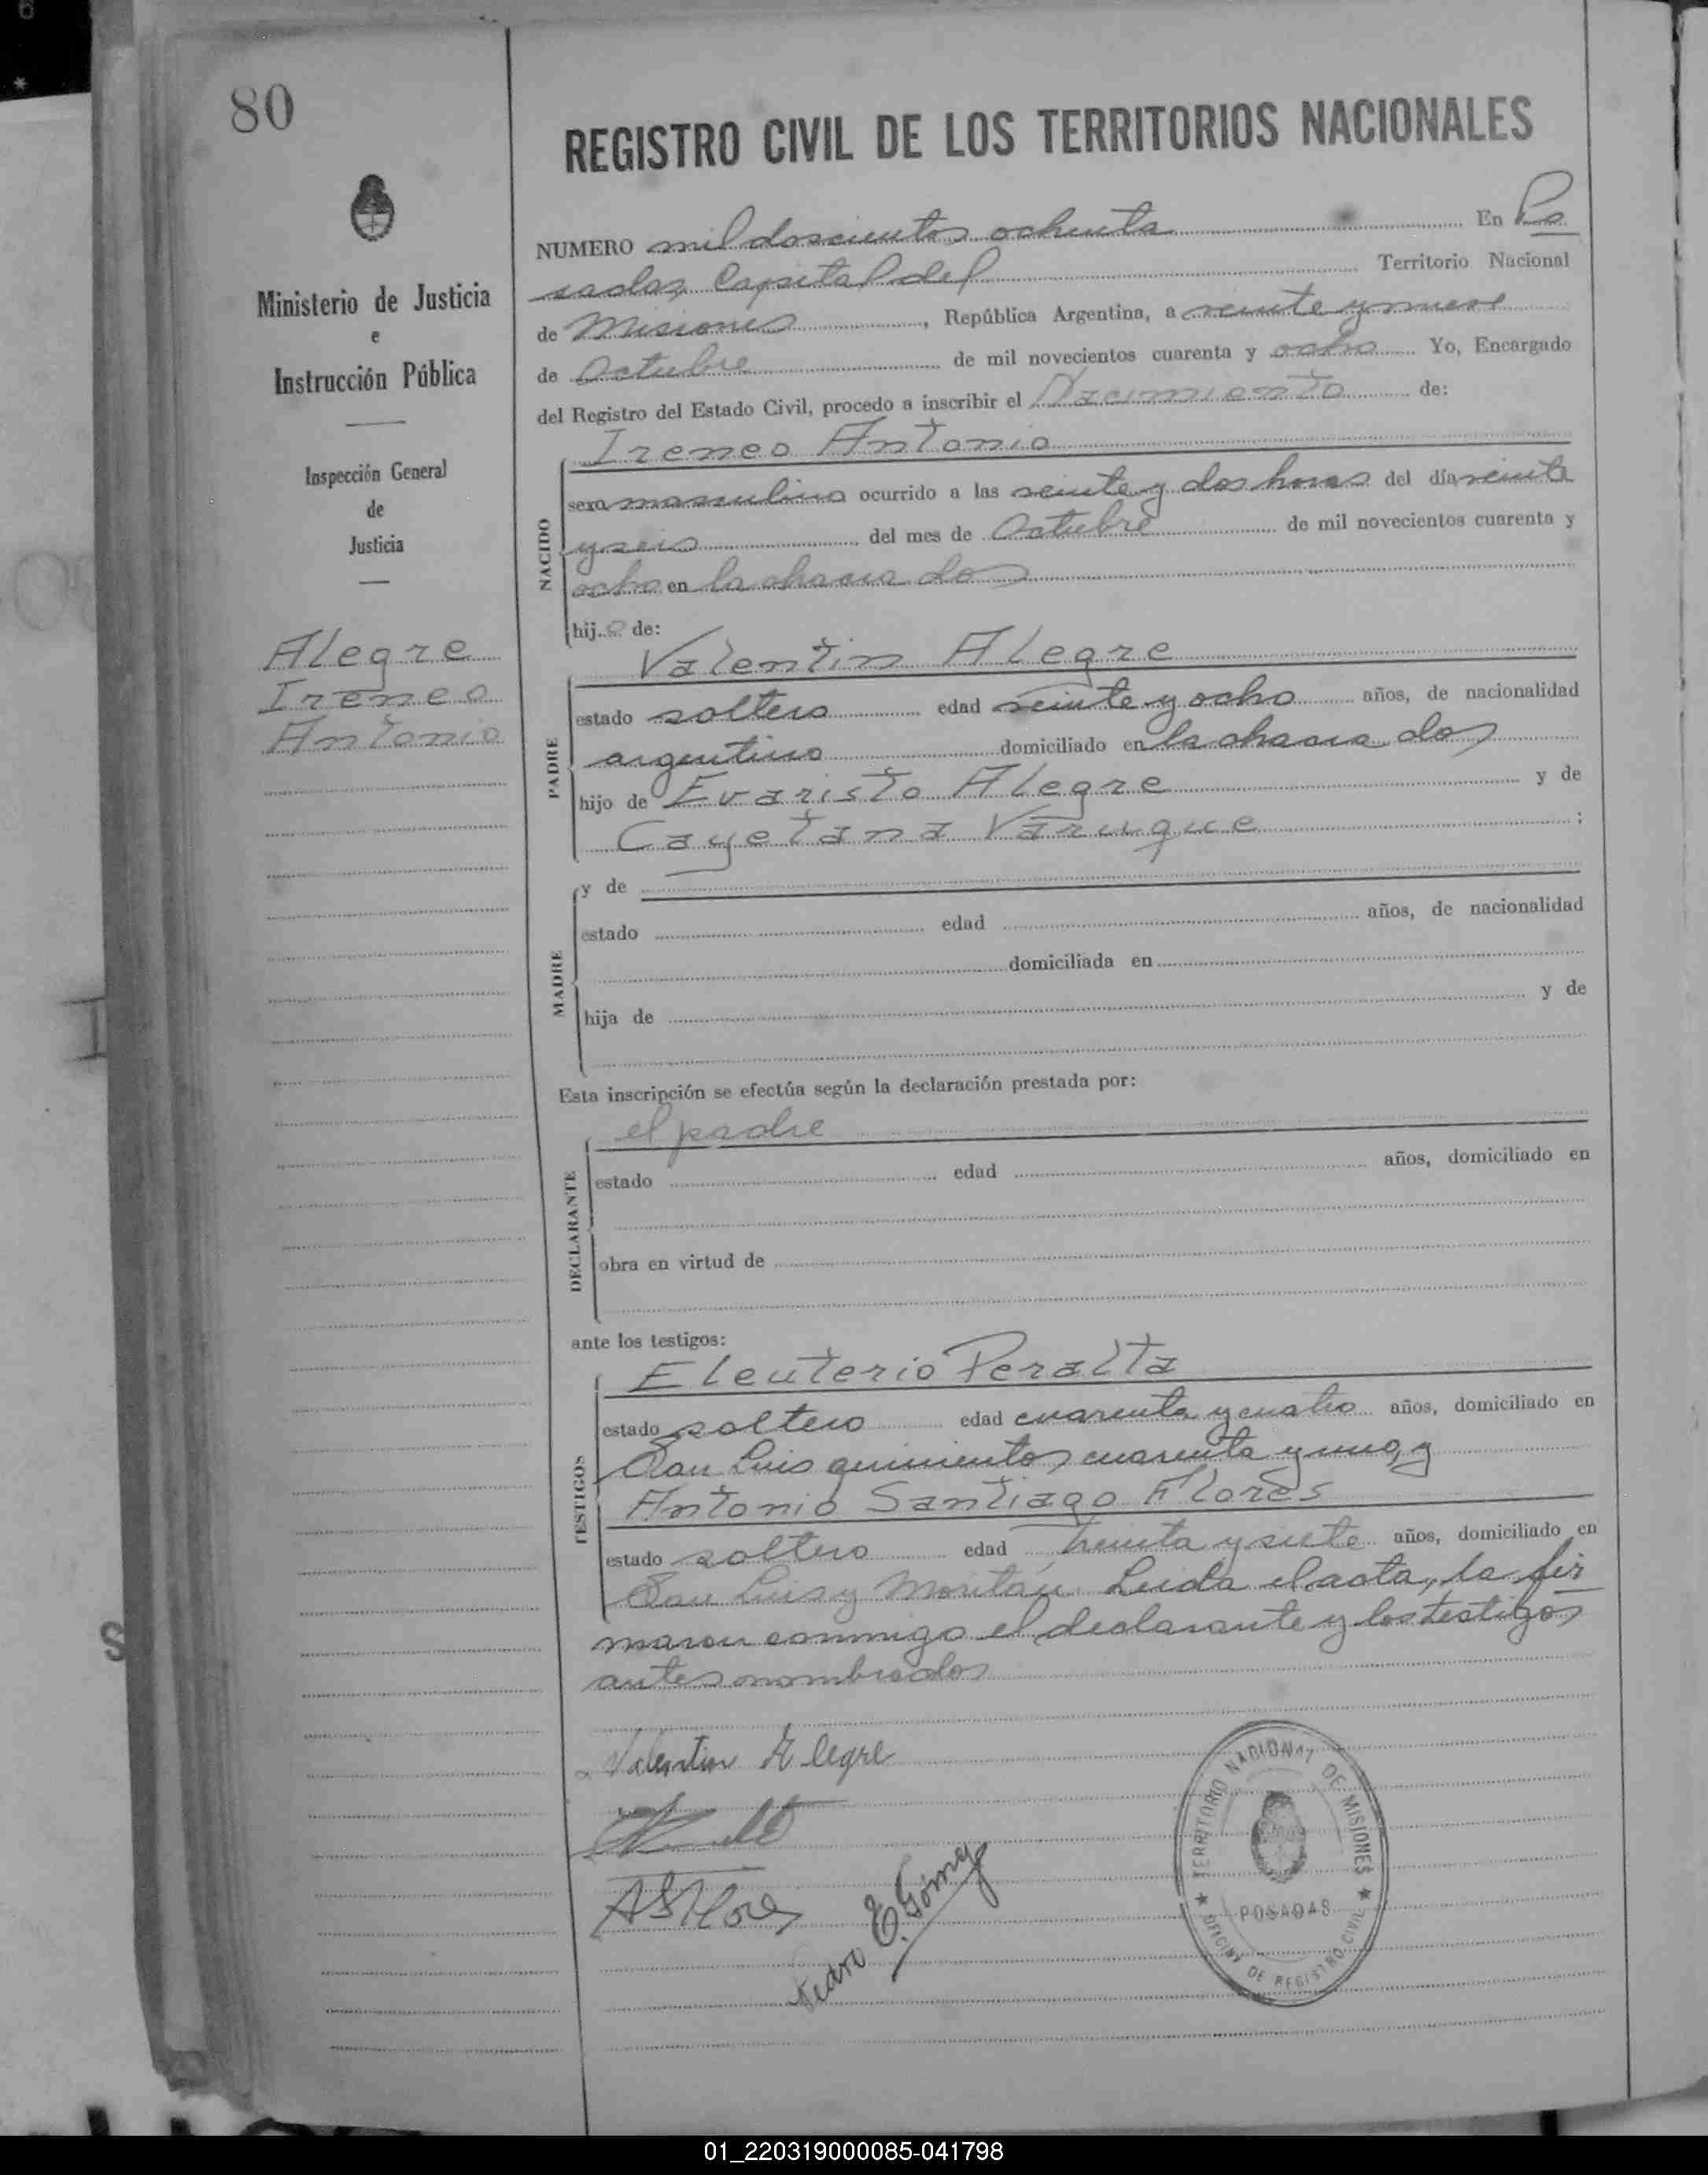 80
REGISTRO CIVIL DE LOS TERRITORIOS NACIONALES
Ministerio de Justicia
e
Instrucción Pública
Inspección General
de
Justicia
Alegre
Ireneo
Antonio
NUMERO mil doscientos ochenta En Po
sadas, Capital del Territorio Nacional
de Misiones, República Argentina, a veinte y nueve
de Octubre de mil novecientos cuarenta y ocho Yo, Encargado
del Registro del Estado Civil, procedo a inscribir el Nacimiento de:
NACIDO
Ireneo Antonio
sexo masculino ocurrido a las veinte y dos horas del día veinte
y seis, del mes de Octubre de mil novecientos cuarenta y
ocho en la chacra dos
hijo de:
PADRE
Valentin Alegre
estado soltero edad veinte y ocho años, de nacionalidad
argentino domiciliado en la chacra dos
hijo de Evaristo Alegre y de
Cayetana Varuque ;
MADRE
y de
estado edad años, de nacionalidad
domiciliada en
hija de y de
Esta inscripción se efectúa según la declaración prestada por:
DECLARANTE
el padre
estado edad años, domiciliado en
obra en virtud de
ante los testigos:
TESTIGOS
Eleuterio Peralta
estado soltero edad cuarenta y cuatro años, domiciliado en
San Luis quinientos cuarenta y uno, y
Antonio Santiago Flores
estado soltero edad treinta y siete años, domiciliado en
San Luis y Moritán. Leida el acta, la fir
maron conmigo el declarante y los testigos
antes nombrados
Valentin Alegre
ASFlores
Pedro E. Gómez
TERRITORIO NACIONAL DE MISIONES
POSADAS
OFICINA DE REGISTRO CIVIL
01_220319000085-041798